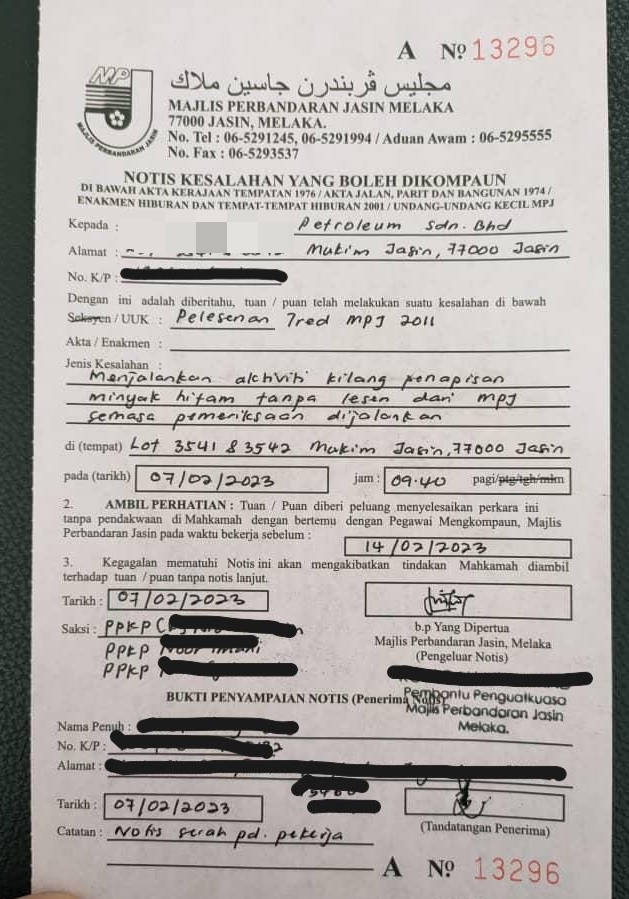 A Nº 13296
MP
MAJLIS PERBANDARAN JASIN
مجليس ڤربندرن جاسين ملاك
MAJLIS PERBANDARAN JASIN MELAKA
77000 JASIN, MELAKA.
No. Tel : 06-5291245, 06-5291994 / Aduan Awam : 06-5295555
No. Fax : 06-5293537
NOTIS KESALAHAN YANG BOLEH DIKOMPAUN
DI BAWAH AKTA KERAJAAN TEMPATAN 1976 / AKTA JALAN, PARIT DAN BANGUNAN 1974 /
ENAKMEN HIBURAN DAN TEMPAT-TEMPAT HIBURAN 2001 / UNDANG-UNDANG KECIL MPJ
Kepada : Petroleum Sdn. Bhd
Alamat : Mukim Jasin, 77000 Jasin
No. K/P :
Dengan ini adalah diberitahu, tuan / puan telah melakukan suatu kesalahan di bawah
Seksyen / UUK : Pelesenan Tred MPJ 2011
Akta / Enakmen :
Jenis Kesalahan :
Menjalankan aktiviti kilang penapisan
minyak hitam tanpa lesen dari MPJ
semasa pemeriksaan dijalankan
di (tempat) Lot 3541 & 3542 Mukim Jasin, 77000 Jasin
pada (tarikh) 07/02/2023 jam : 09.40 pagi/ptg/tgh/mlm
2. AMBIL PERHATIAN : Tuan / Puan diberi peluang menyelesaikan perkara ini
tanpa pendakwaan di Mahkamah dengan bertemu dengan Pegawai Mengkompaun, Majlis
Perbandaran Jasin pada waktu bekerja sebelum :
14/02/2023
3. Kegagalan mematuhi Notis ini akan mengakibatkan tindakan Mahkamah diambil
terhadap tuan / puan tanpa notis lanjut.
Tarikh : 07/02/2023
Saksi : PPKP
PPKP
PPKP
b.p Yang Dipertua
Majlis Perbandaran Jasin, Melaka
(Pengeluar Notis)
Pembantu Penguatkuasa
Majlis Perbandaran Jasin
Melaka.
BUKTI PENYAMPAIAN NOTIS (Penerima Notis)
Nama Penuh :
No. K/P :
Alamat :
Tarikh : 07/02/2023
(Tandatangan Penerima)
Catatan : Notis serah pd. pekerja
A Nº 13296